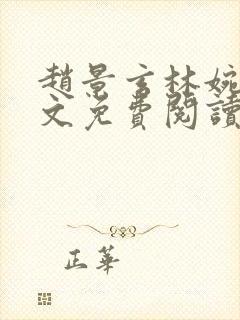 趙景言林婉
文免費閱讀
正華